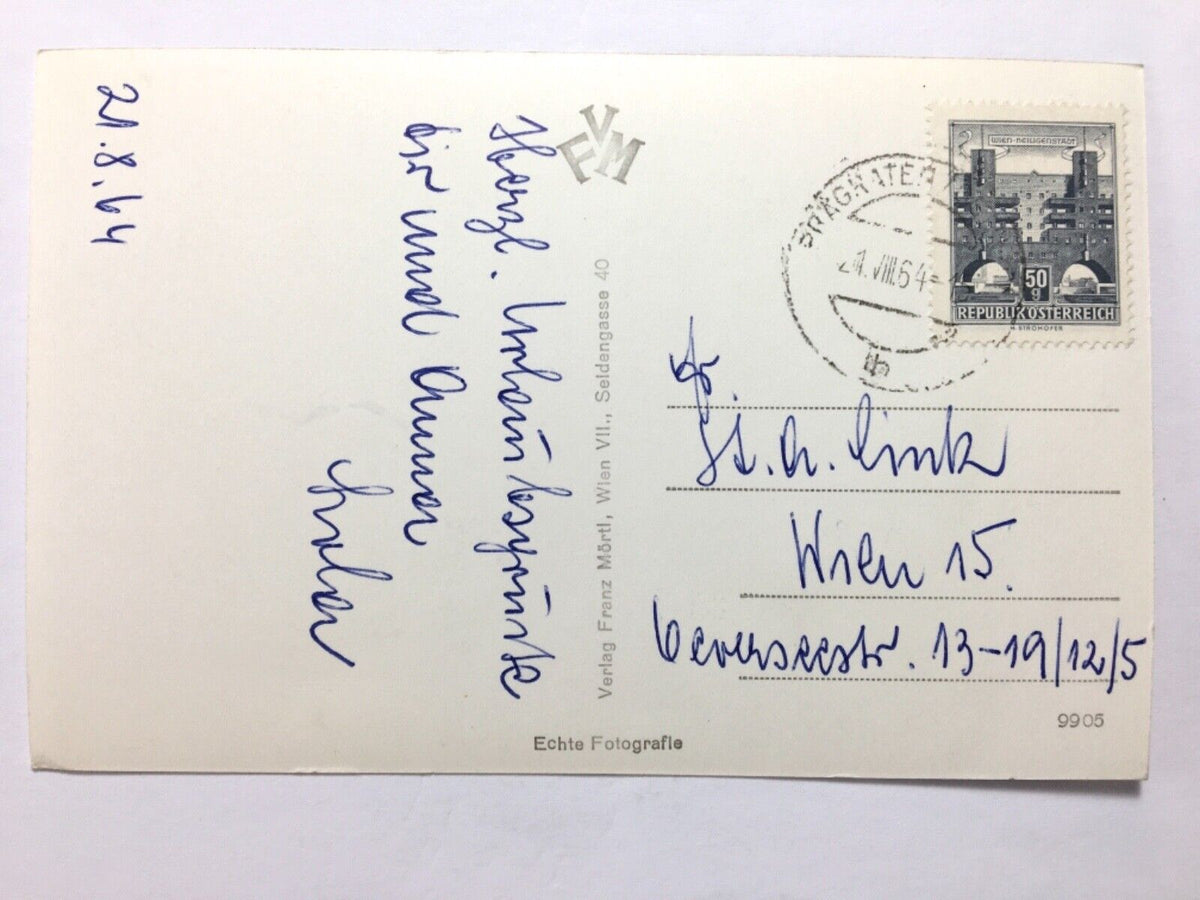 21.8.64
Herzl. Urlaubsgrüße
Dir und Anna
FVM
Verlag Franz Mörtl, Wien VII., Seidengasse 40
Echte Fotografie
WIEN-HEILIGENSTADT
50
g
REPUBLIK ÖSTERREICH
H. STROHOFER
PRÄGRATEN
21.VIII.64
b
Fr.
Link
Wien 15.
13-19/12/5
9905